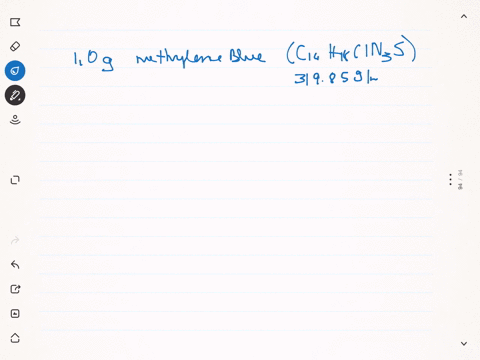 1.0g methylene Blue (C16H18ClN3S)
319.85g/m